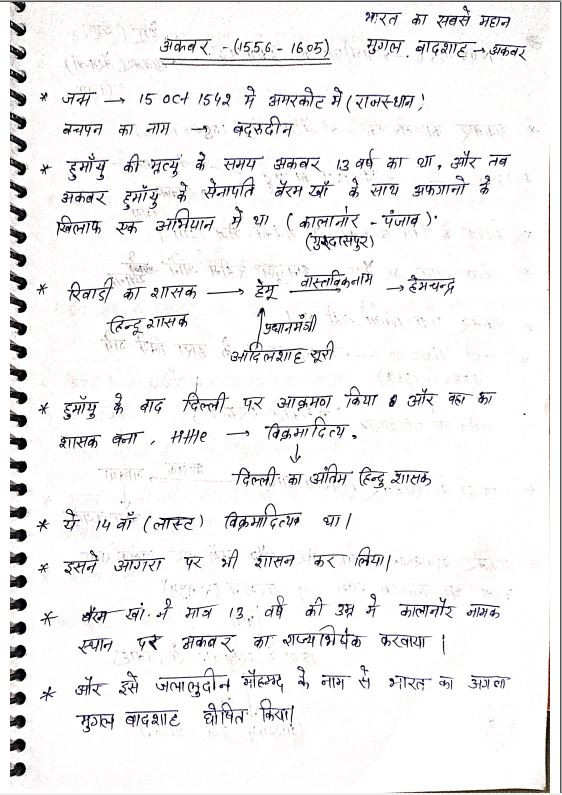 भारत का सबसे महान
अकबर - (1556 - 1605) मुगल बादशाह → अकबर
* जन्म → 15 oct 1542 मे अमरकोट मे (राजस्थान)
बचपन का नाम → बदरुदीन
* हुमाँयु की मृत्यु के समय अकबर 13 वर्ष का था, और तब
अकबर हुमाँयु के सेनापति बैरम खाँ के साथ अफगानो के
खिलाफ एक अभियान मे था (कालानोर - पंजाब)
(गुरदासपुर)
* रिवाडी का शासक → हेमू वास्तविक नाम → हेमचन्द्र
हिन्दू शासक
प्रधानमंत्री
आदिलशाह सूरी
* हुमाँयु के बाद दिल्ली पर आक्रमण किया और वहा का
शासक बना, → विक्रमादित्य,
दिल्ली का अंतिम हिन्दू शासक
* ये 14 वाँ (लास्ट) विक्रमादित्य था।
* इसने आगरा पर भी शासन कर लिया।
* बैरम खां ने मात्र 13 वर्ष की उम्र मे कालानौर नामक
स्थान पर अकबर का राज्यभिषेक करवाया।
* और इसे जलालुदीन मौहम्मद के नाम से भारत का अगला
मुगल बादशाह घोषित किया।